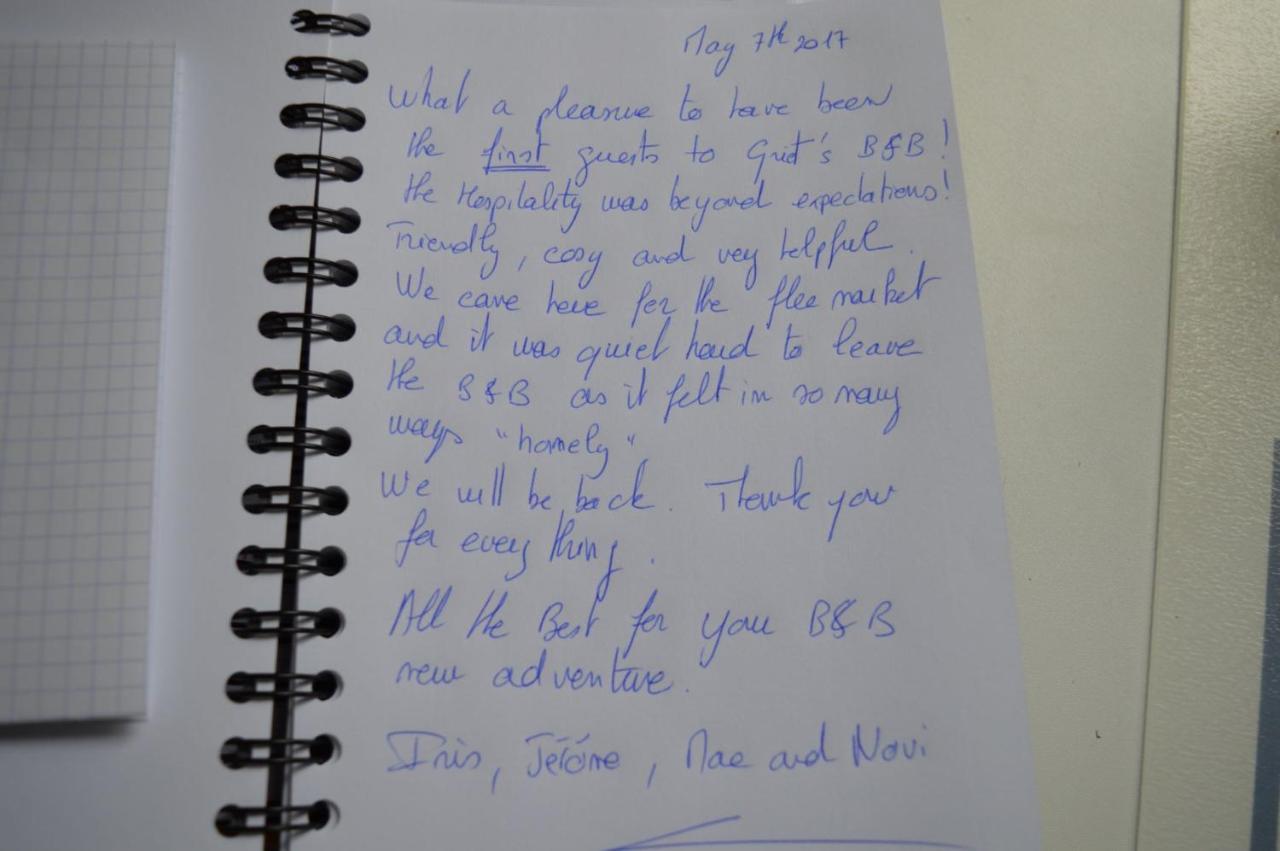 May 7th 2017
What a pleasure to have been
the first guests to Grit's B&B!
the Hospitality was beyond expectations!
Friendly, cosy and very helpful.
We came here for the flee market
and it was quiet hard to leave
the B&B as it felt in so many
ways "homely"
We will be back. Thank you
for every thing.
All the Best for you B&B
new adventure.
Iris, Jérôme, Mae and Novi